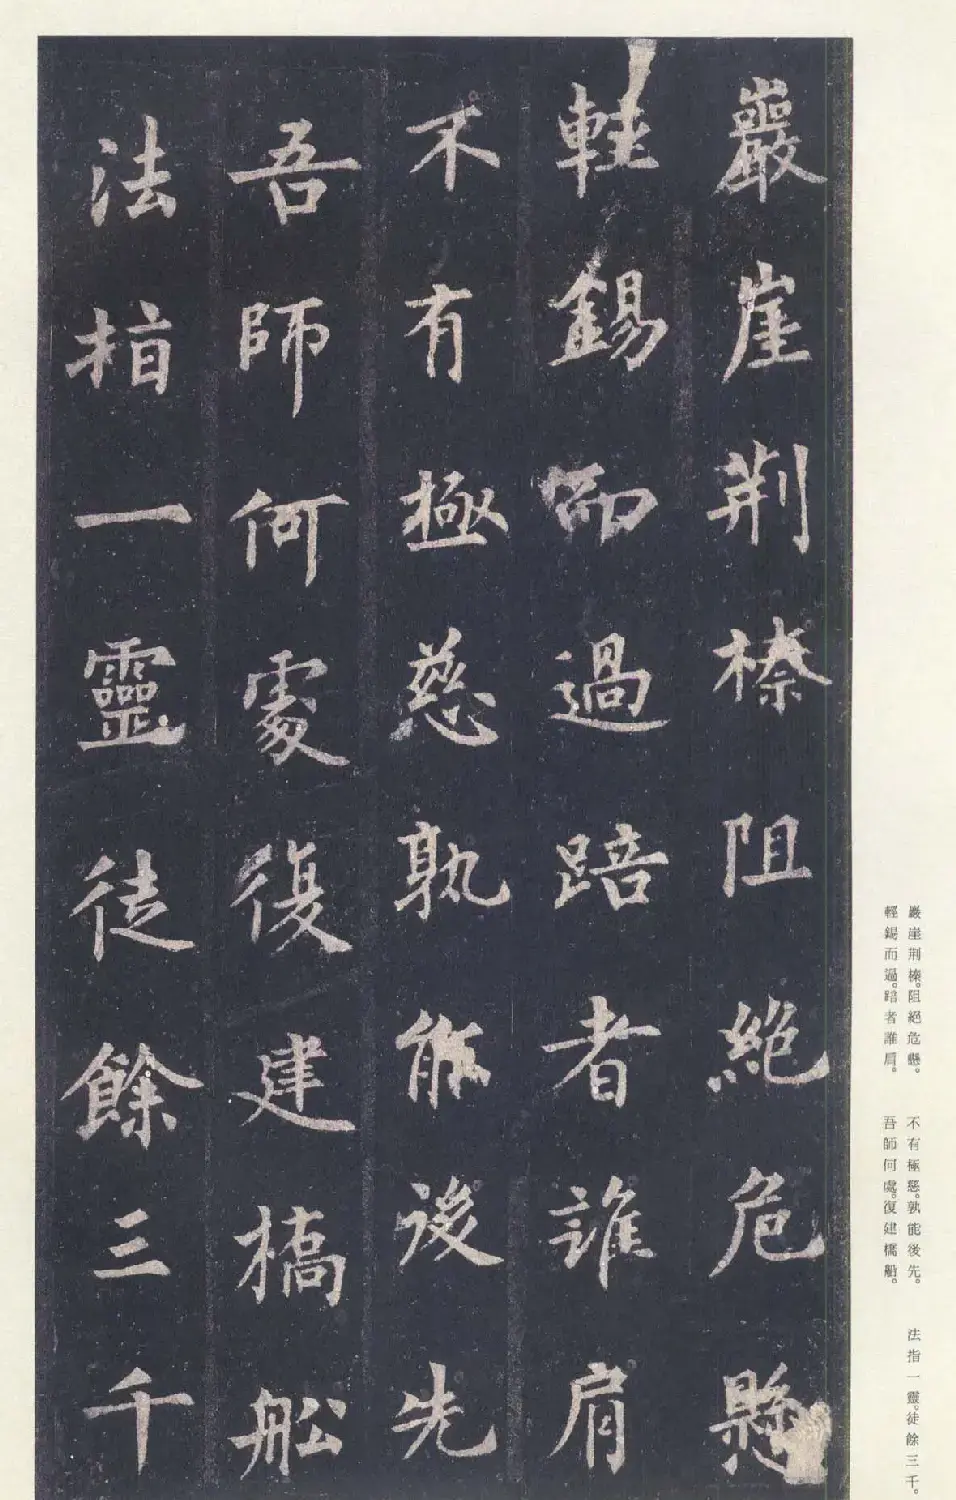 巖崖荆榛阻絕危懸
輕錫而過踣者誰肩
不有極慈孰能後先
吾師何處復建橋船
法指一靈徒餘三千
巖崖荆榛。阻絕危懸。
輕錫而過。踣者誰肩。
不有極慈。孰能後先。
吾師何處。復建橋船。
法指一靈。徒餘三千。